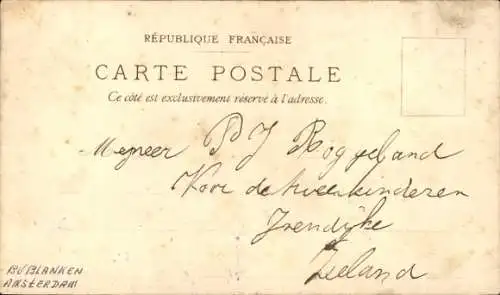 RÉPUBLIQUE FRANÇAISE
CARTE POSTALE
Ce côté est exclusivement réservé à l'adresse.
Meneer P J Roggeband
Voor de kweekinderen
IJzendijke
Zeeland
BV BLANKEN
AMSTERDAM